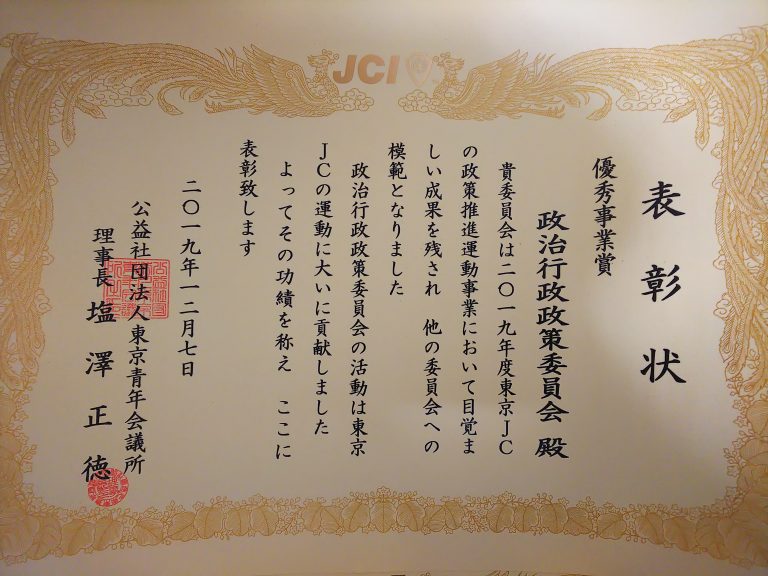 JCI
表彰状
優秀事業賞
政治行政政策委員会 殿
貴委員会は二〇一九年度東京JC
の政策推進運動事業において目覚ま
しい成果を残され 他の委員会への
模範となりました
政治行政政策委員会の活動は東京
JCの運動に大いに貢献しました
よってその功績を称え ここに
表彰致します
二〇一九年一二月七日
公益社団法人東京青年会議所
理事長 塩澤正徳